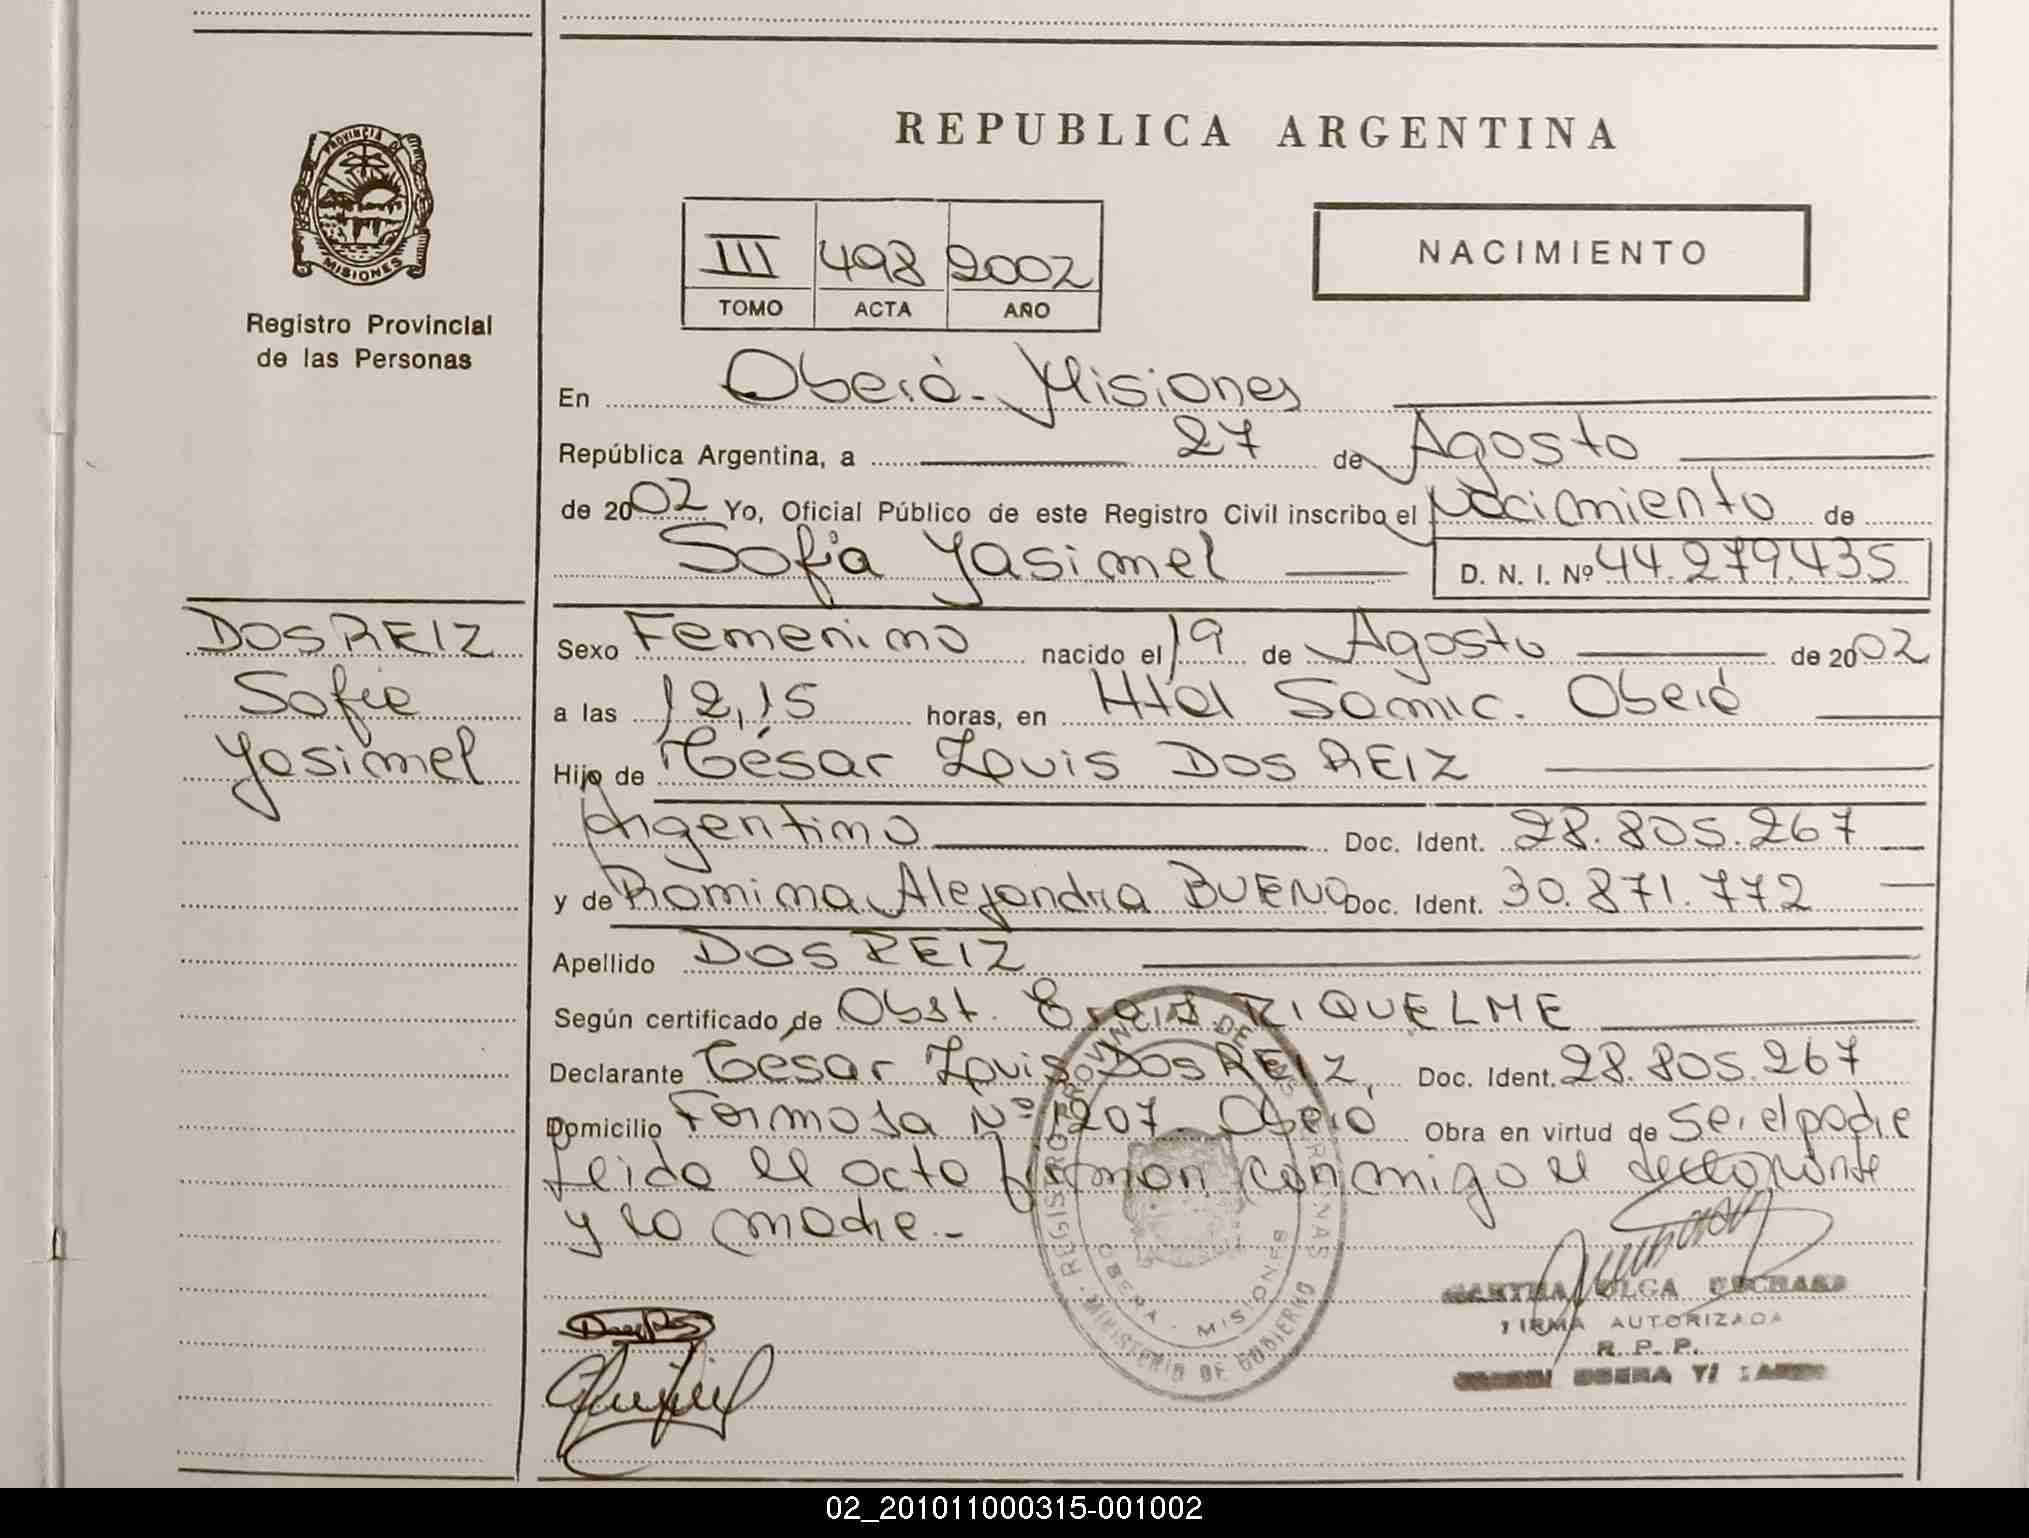 PROVINCIA DE
MISIONES
Registro Provincial
de las Personas
REPUBLICA ARGENTINA
III 498 2002
TOMO ACTA AÑO
NACIMIENTO
En Oberá - Misiones
República Argentina, a 27 de Agosto
de 2002 Yo, Oficial Público de este Registro Civil inscribo el Nacimiento de
Sofía Yasimel D. N. I. Nº 44.279.435
DOS REIZ
Sofia
Yasimel
Sexo Femenino nacido el 19 de Agosto de 2002
a las 12,15 horas, en Htal Samic. Oberá
Hijo de César Louis DOS REIZ
Argentino Doc. Ident. 28.805.267
y de Romina Alejandra BUENO Doc. Ident. 30.871.772
Apellido DOS REIZ
Según certificado de Obst. RIQUELME
Declarante César Louis DOS REIZ, Doc. Ident. 28.805.267
Domicilio Formosa Nº 1207 - Oberá Obra en virtud de Ser el padre
Leida el acta firman conmigo el declarante
y la madre.-
REGISTRO PROVINCIAL DE LAS PERSONAS
OBERA - MISIONES
MINISTERIO DE GOBIERNO
MARTHA OLGA
FIRMA AUTORIZADA
R. P. P.
OBERA
02_201011000315-001002